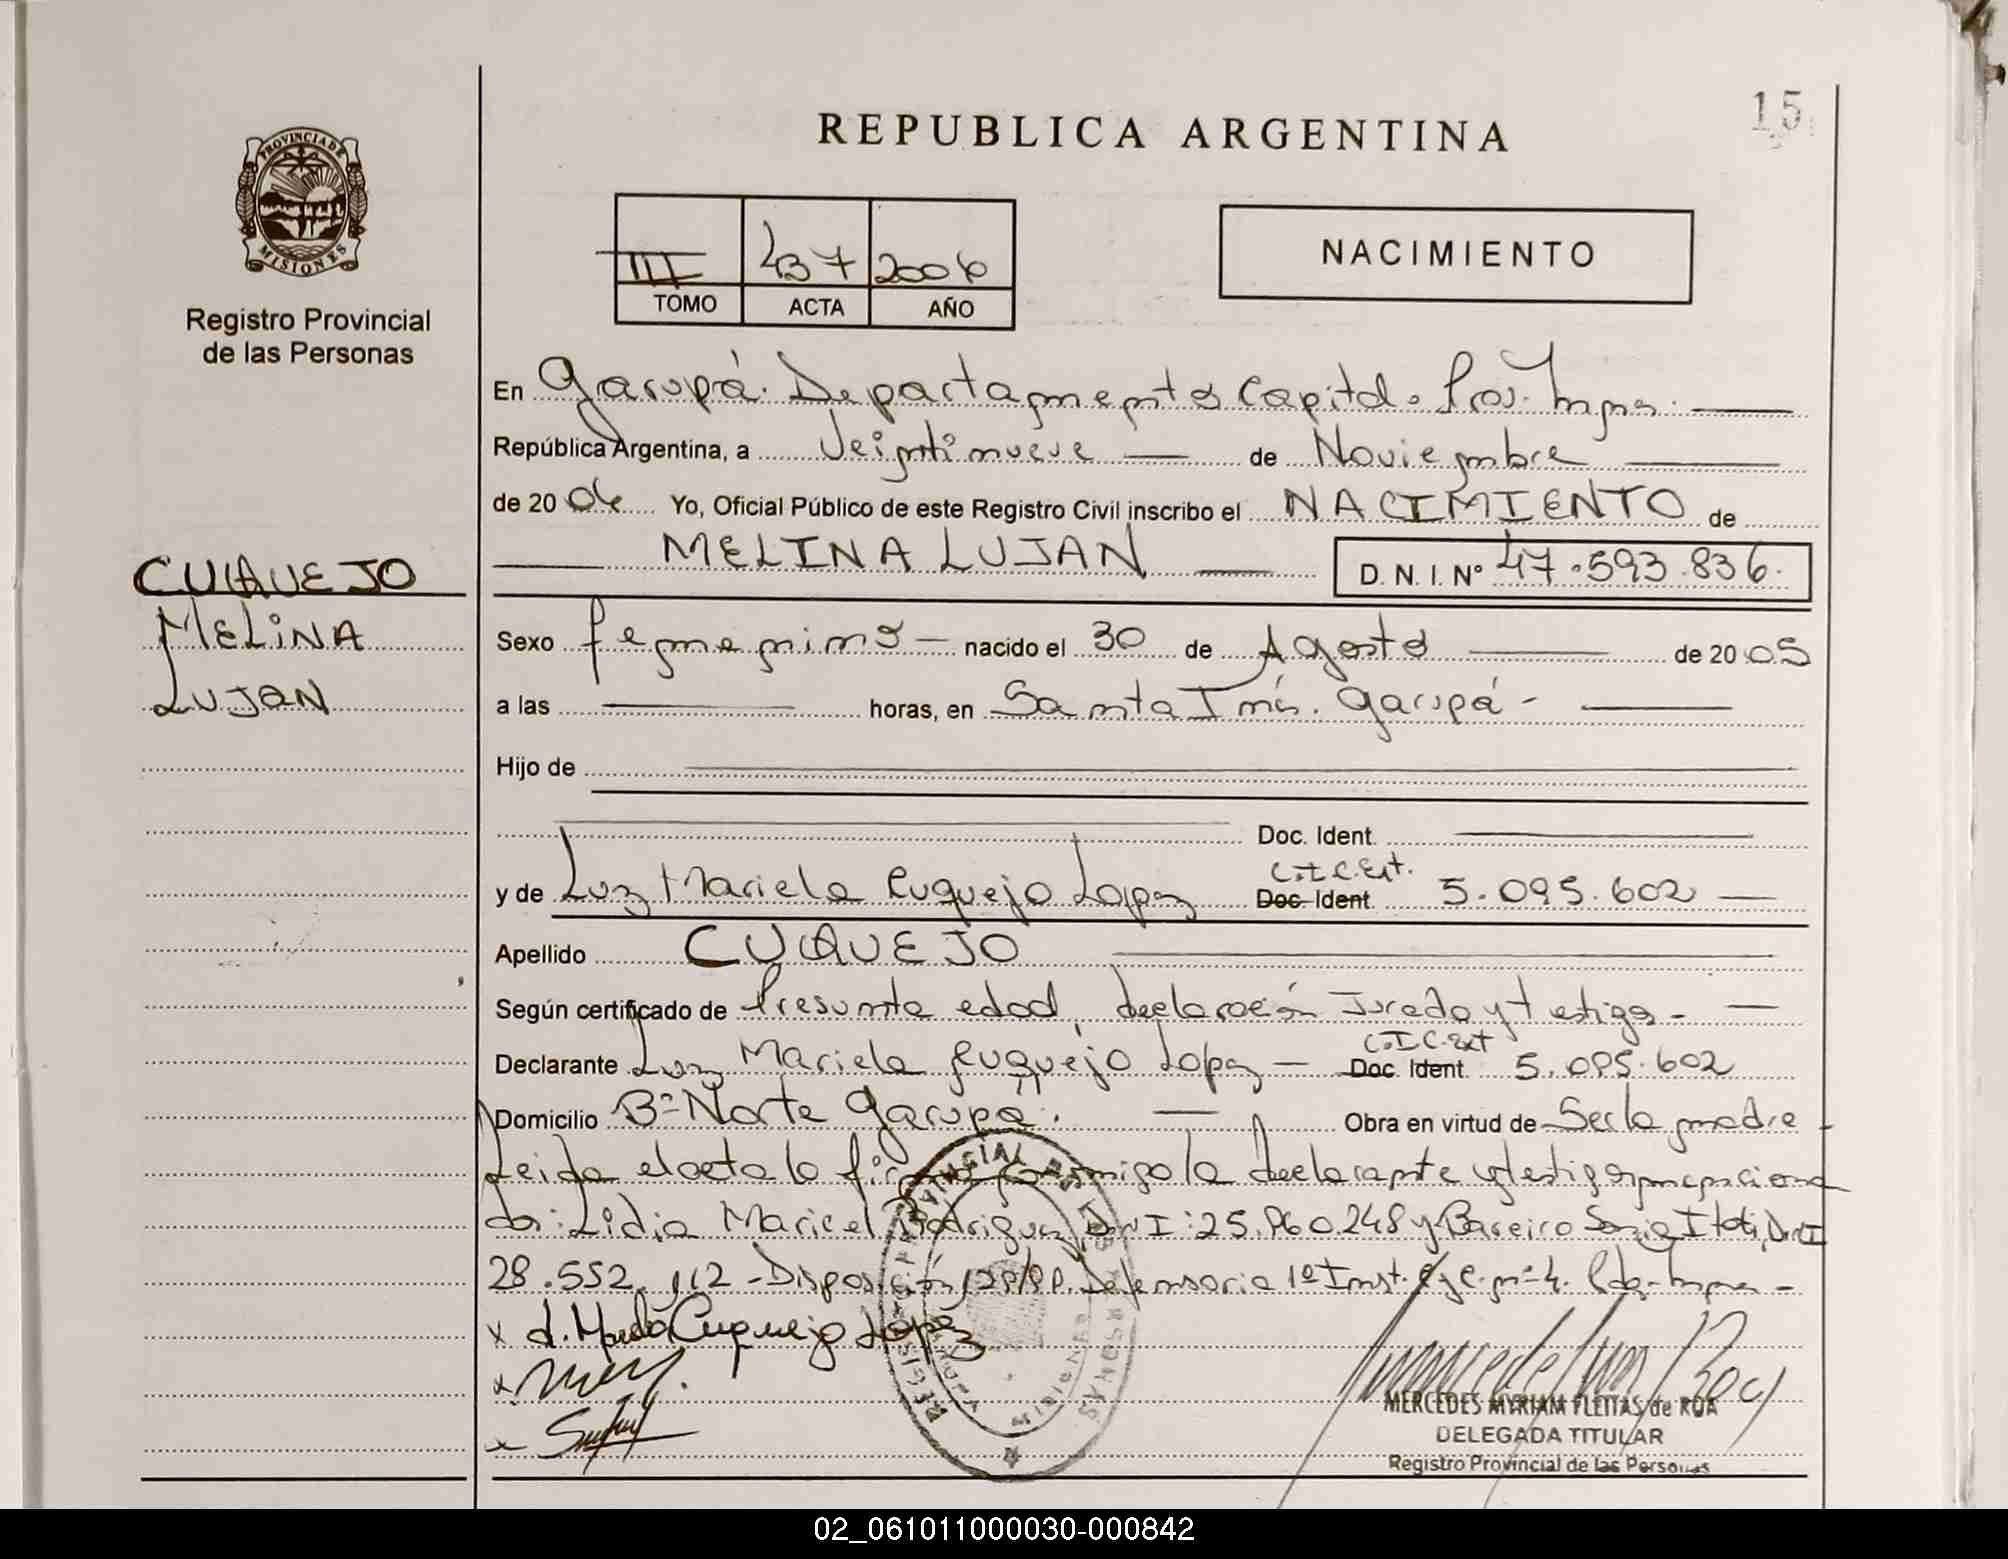 15
REPUBLICA ARGENTINA
PROVINCIA DE
MISIONES
Registro Provincial
de las Personas
III 437 2006
TOMO ACTA AÑO
NACIMIENTO
En Garupá. Departamento Capital. Prov. Mnes.
República Argentina, a Veintinueve de Noviembre
de 2006 Yo, Oficial Público de este Registro Civil inscribo el NACIMIENTO de
MELINA LUJAN D. N. I. Nº 47.593.836.
CUQUEJO
MELINA
LUJAN
Sexo femenino nacido el 30 de Agosto de 2005
a las horas, en Santa Inés. Garupá -
Hijo de
Doc. Ident.
C.I.C.Ext.
y de Luz Mariela Cuquejo Lopez Doc. Ident. 5.095.602
Apellido CUQUEJO
Según certificado de Presunta edad, declaración Jurada y testigo -
C.I C.Ext
Declarante Luz Mariela Cuquejo Lopez - Doc. Ident. 5.095.602
Domicilio Bº Norte Garupá. Obra en virtud de Ser la madre
Leida el acta la firma conmigo la declarante y testigos menciona
dos: Lidia Maricel Rodriguez DNI: 25.960.248 y Bareiro Sonia Itati, DNI
28.552.112 - Disposición Defensoria 1º Inst. nº 4. Pdas - Mnes -
x L. Mariela Cuquejo Lopez
x
x
REGISTRO PROVINCIAL DE LAS PERSONAS
GARUPA MISIONES
MERCEDES MYRIAM FLEITAS de ROA
DELEGADA TITULAR
Registro Provincial de las Personas
02_061011000030-000842